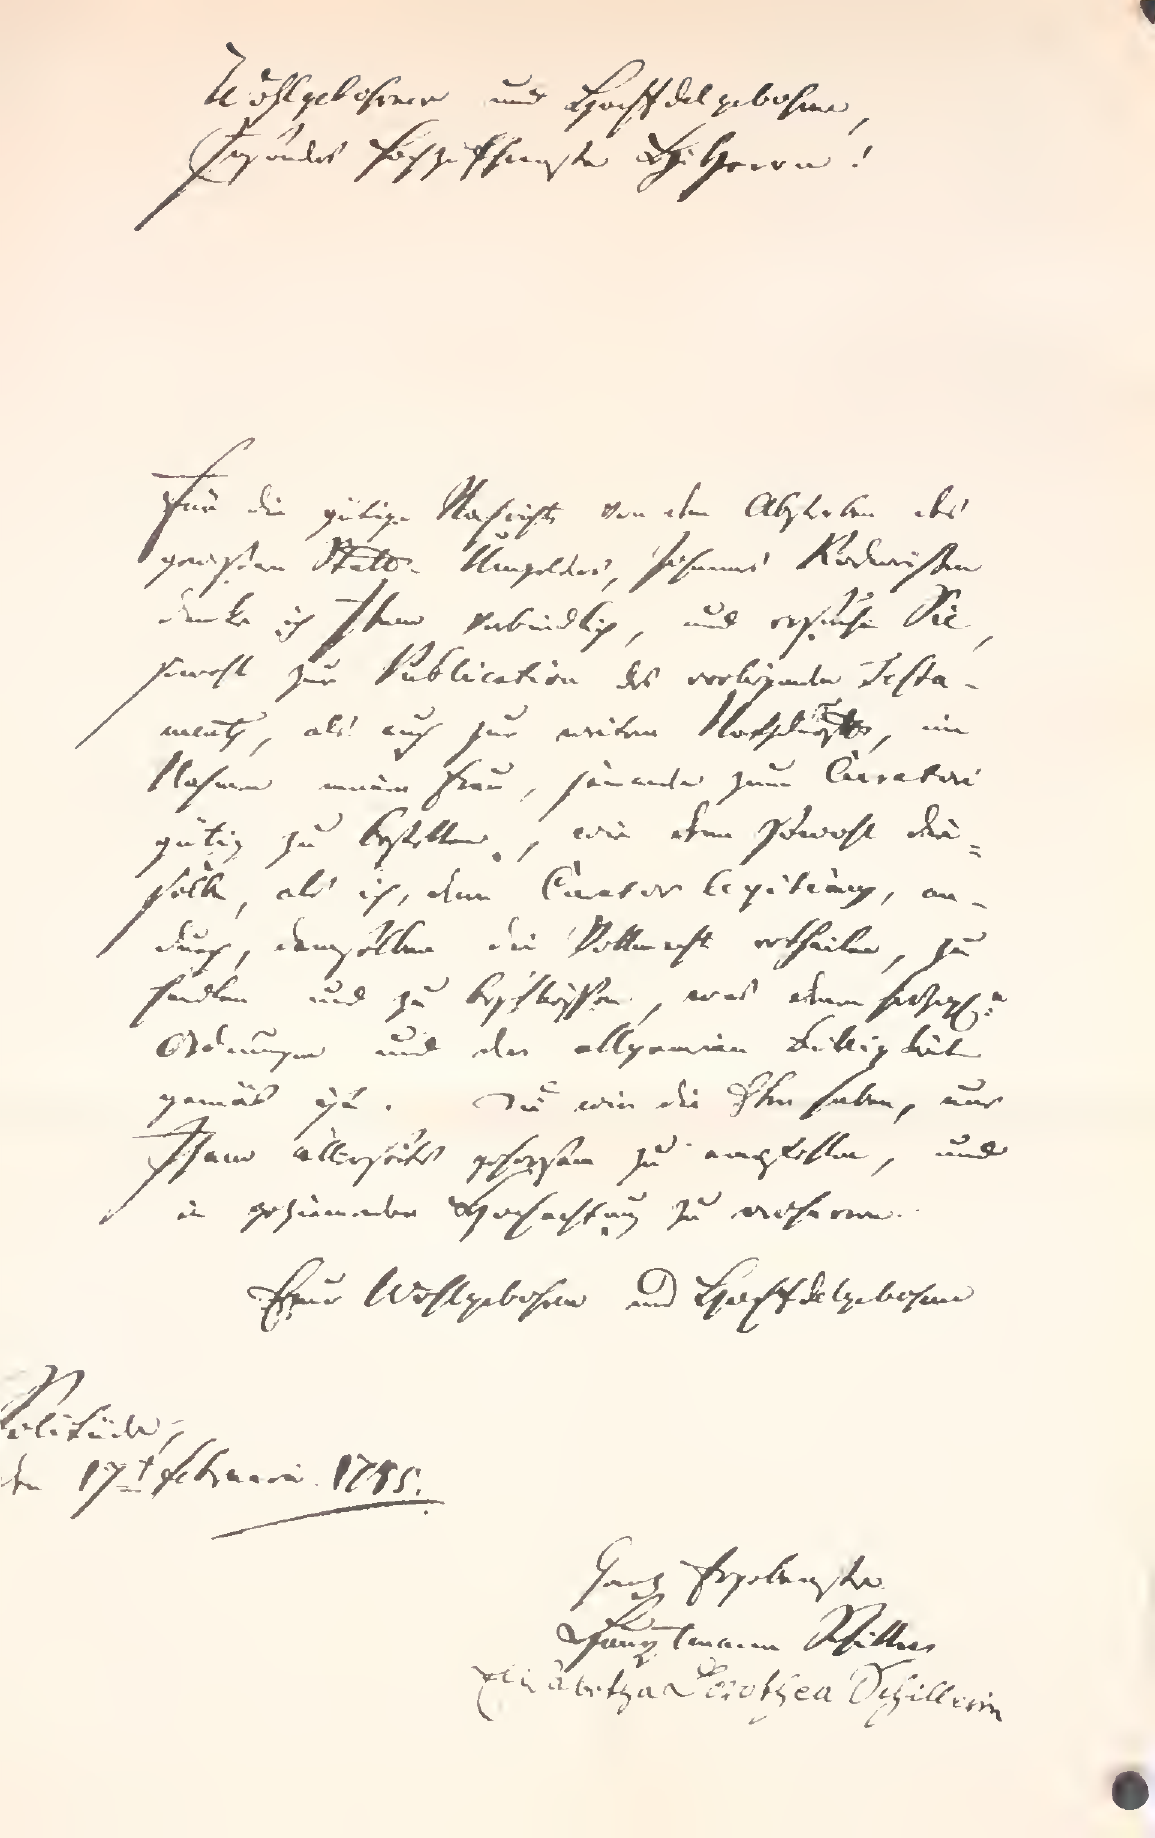 Wohlgebohrner und HochEdelgebohrne,
Insonders hochzuEhrengste HhHerrn!
Für die gütige Nachricht von dem Absterben des
gewesten Stadt- Umgelders, Johannes Kodweißen
danke ich Ihnen verbindlich, und ersuche Sie,
sowohl zur Publication des vorliegenden Testa-
ments, als auch zur weitern Nothdurfft, im
Nahmen meiner Frau, jemanden zum Curatori
gütig zu bestellen, wie denn sowohl die=
selbe, als ich, dem Curator legitimus, an-
durch, demselben die Vollmacht ertheilen, zu
handlen und zu beschließen, was denen
Ordnungen und der allgemeinen Billigkeit
gemäß ist. Die wir die Ehre haben, uns
Ihnen allerseits gehorsam zu empfehlen, und
in geziemender Hochachtung zu verharren.
Euer Wohlgebohrn und HochEdelgebohrne
Solitude,
den 17t Februarii 1785.
Ganz Ergebenste
Hauptmann Schiller
Elisabetha Dorothea Schillerin